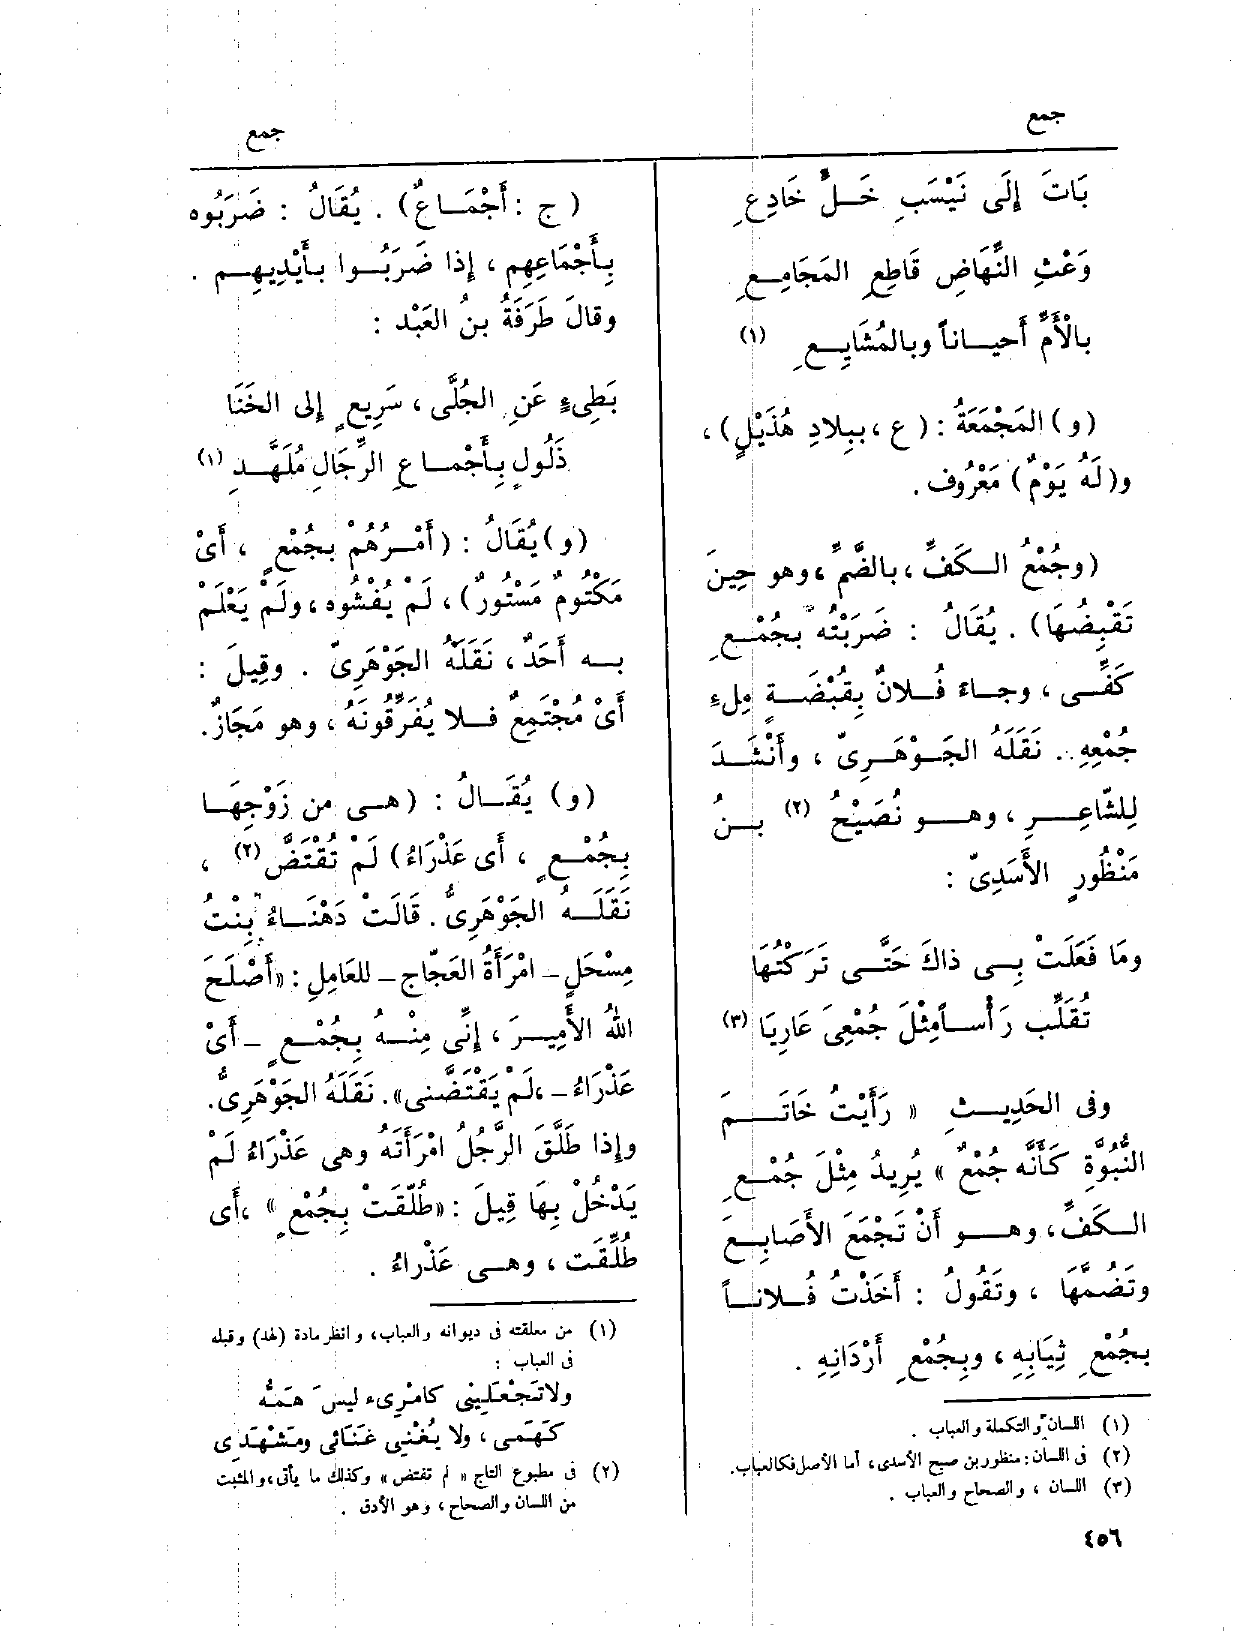 جمع
جمع
بَاتَ إِلَى نَيْسَبِ خَلٍّ خَادِعِ
وَعْثِ النِّهَاضِ قَاطِعِ المَجَامِعِ
بالْأَمِّ أَحياناً وبالمُشَايِعِ (١)
(و) المَجْمَعَةُ : (ع ، بِبِلادِ هُذَيْلٍ) ،
و(لَهُ يَوْمٌ) مَعْرُوف .
(وجُمْعُ الكَفِّ ، بالضَّمِّ ، وهو حِينَ
تَقْبِضُهَا) . يُقَالُ : ضَرَبْتُه بجُمْعِ
كَفِّى ، وجاءَ فُلانٌ بِقُبْضَةٍ مِلءِ
جُمْعِهِ . نَقَلَهُ الجَوْهَرِىّ ، وأَنْشَدَ
لِلشّاعِرِ ، وهو نُصَيْحُ (٢) بنُ
مَنْظُورٍ الأَسَدِىّ :
ومَا فَعَلَتْ بِى ذاكَ حَتَّى تَرَكْتُهَا
تُقَلِّب رَأْساً مِثْلَ جُمْعِىَ عَارِيَا (٣)
وفى الحَدِيثِ « رَأَيْتُ خَاتَمَ
النُّبُوَّةِ كَأَنَّه جُمْعٌ » يُرِيدُ مِثْلَ جُمْعِ
الكَفِّ ، وهو أَنْ تَجْمَعَ الأَصَابِعَ
وتَضُمَّهَا ، وتَقُولُ : أَخَذْتُ فُلاناً
بِجُمْعِ ثِيَابِهِ ، وبِجُمْعِ أَرْدَانِهِ .
(١) اللسان والتكملة والعباب .
(٢) فى اللسان : منظور بن صبح الأسدى ، أما الأصل فكالعباب .
(٣) اللسان ، والصحاح والعباب .
(ج : أَجْمَاعٌ) . يُقَالُ : ضَرَبُوه
بِأَجْمَاعِهِم ، إذا ضَرَبُوا بأَيْدِيهِم .
وقالَ طَرَفَةُ بنُ العَبْد :
بَطِىءٍ عَنِ الجُلَّى ، سَرِيعٍ إلى الخَنَا
ذَلُولٍ بِأَجْماعِ الرِّجَالِ مُلَهَّدِ (١)
(و) يُقَالُ : (أَمْرُهُمْ بجُمْعٍ ، أَىْ
مَكْتُومٌ مَسْتُورٌ) ، لَمْ يُفْشُوه ، ولَمْ يَعْلَمْ
به أَحَدٌ ، نَقَلَهُ الجَوْهَرِىّ . وقِيلَ :
أَىْ مُجْتَمِعٌ فلا يُفَرِّقُونَهُ ، وهو مَجَازٌ .
(و) يُقَالُ : (هى من زَوْجِهَا
بِجُمْعٍ ، أَى عَذْرَاءُ) لَمْ تُقْتَضَّ (٢) ،
نَقَلَهُ الجَوْهَرِىُّ . قَالَتْ دَهْنَاءُ بِنْتُ
مِسْحَلٍ - امْرَأَةُ العَجّاج - للعَامِلِ : «أَصْلَحَ
اللهُ الأَمِيرَ ، إِنِّى مِنْهُ بِجُمْعٍ - أَىْ
عَذْرَاءُ - ، لَمْ يَقْتَضَّنى» . نَقَلَهُ الجَوْهَرِىُّ .
وإذا طَلَّقَ الرَّجُلُ امْرَأَتَهُ وهى عَذْرَاءُ لَمْ
يَدْخُلْ بِهَا قِيلَ : «طُلِّقَتْ بِجُمْعٍ » ، أَى
طُلِّقَت ، وهى عَذْراءُ .
(١) من معلقته فى ديوانه والعباب ، وانظر مادة (لهد) وقبله
فى العباب :
ولاتَجْعَلِينِى كامْرِىء ليسَ هَمُّه
كَهَمِّى ، ولا يُغْنِى غَنَائى ومَشْهَدِى
(٢) فى مطبوع التاج « لم تفتض » وكذلك ما يأتى ، والمثبت
من اللسان والصحاح ، وهو الأدق .
٤٥٦